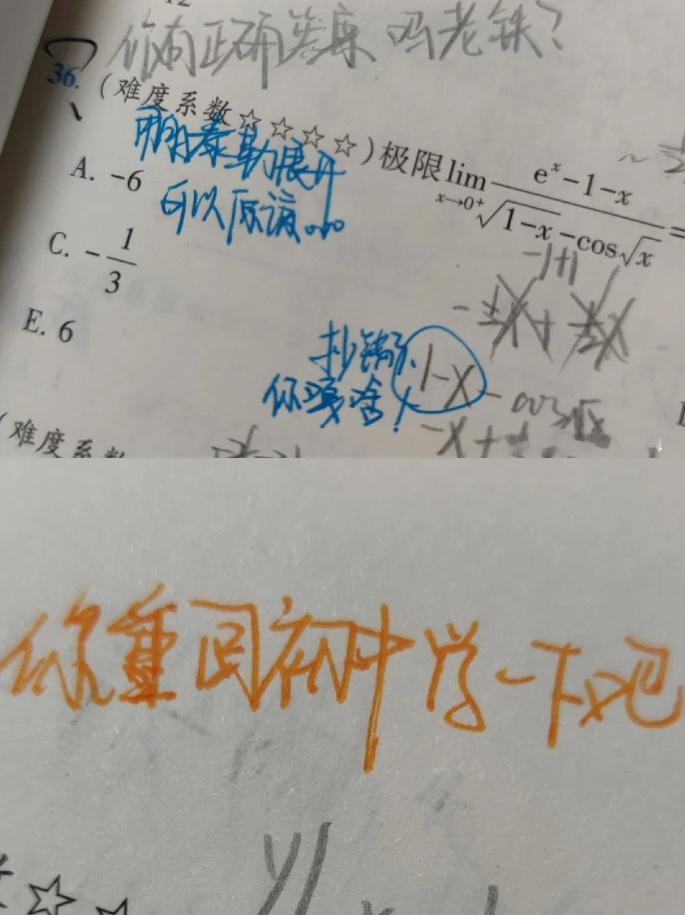 你有正确答案吗老铁？
36.
（难度系数☆☆☆☆）极限lim x→0⁺ (eˣ−1−x)/(√(1−x)−cos√x) =
用泰勒展开
A. −6
可以原谅。。。
−1+1
C. −1/3
E. 6
抄错了
1−x − cos√x
你嘎啥！
−x+
（难度系数
你重回初中学一下吧
☆☆
y